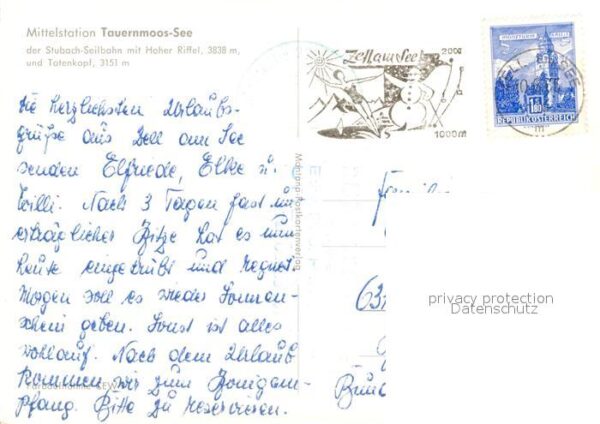 Mittelstation Tauernmoos-See
der Stubach-Seilbahn mit Hoher Riffel, 3838 m,
und Totenkopf, 3151 m
Zell am See
2000
1000 m
1.80
REPUBLIK ÖSTERREICH
Die herzlichsten Urlaubs-
grüße aus Zell am See
senden Elfriede, Elke u.
Willi. Nach 3 Tagen fast un
erträglicher Hitze hat es nun
heute eingetrübt und regnet.
Morgen soll es wieder Sonnen-
schein geben. Sonst ist alles
wohlauf. Nach dem Urlaub
kommen wir zum Honigem-
pfang. Bitte zu reservieren.
Postkartenverlag
Familie
63
privacy protection
Datenschutz